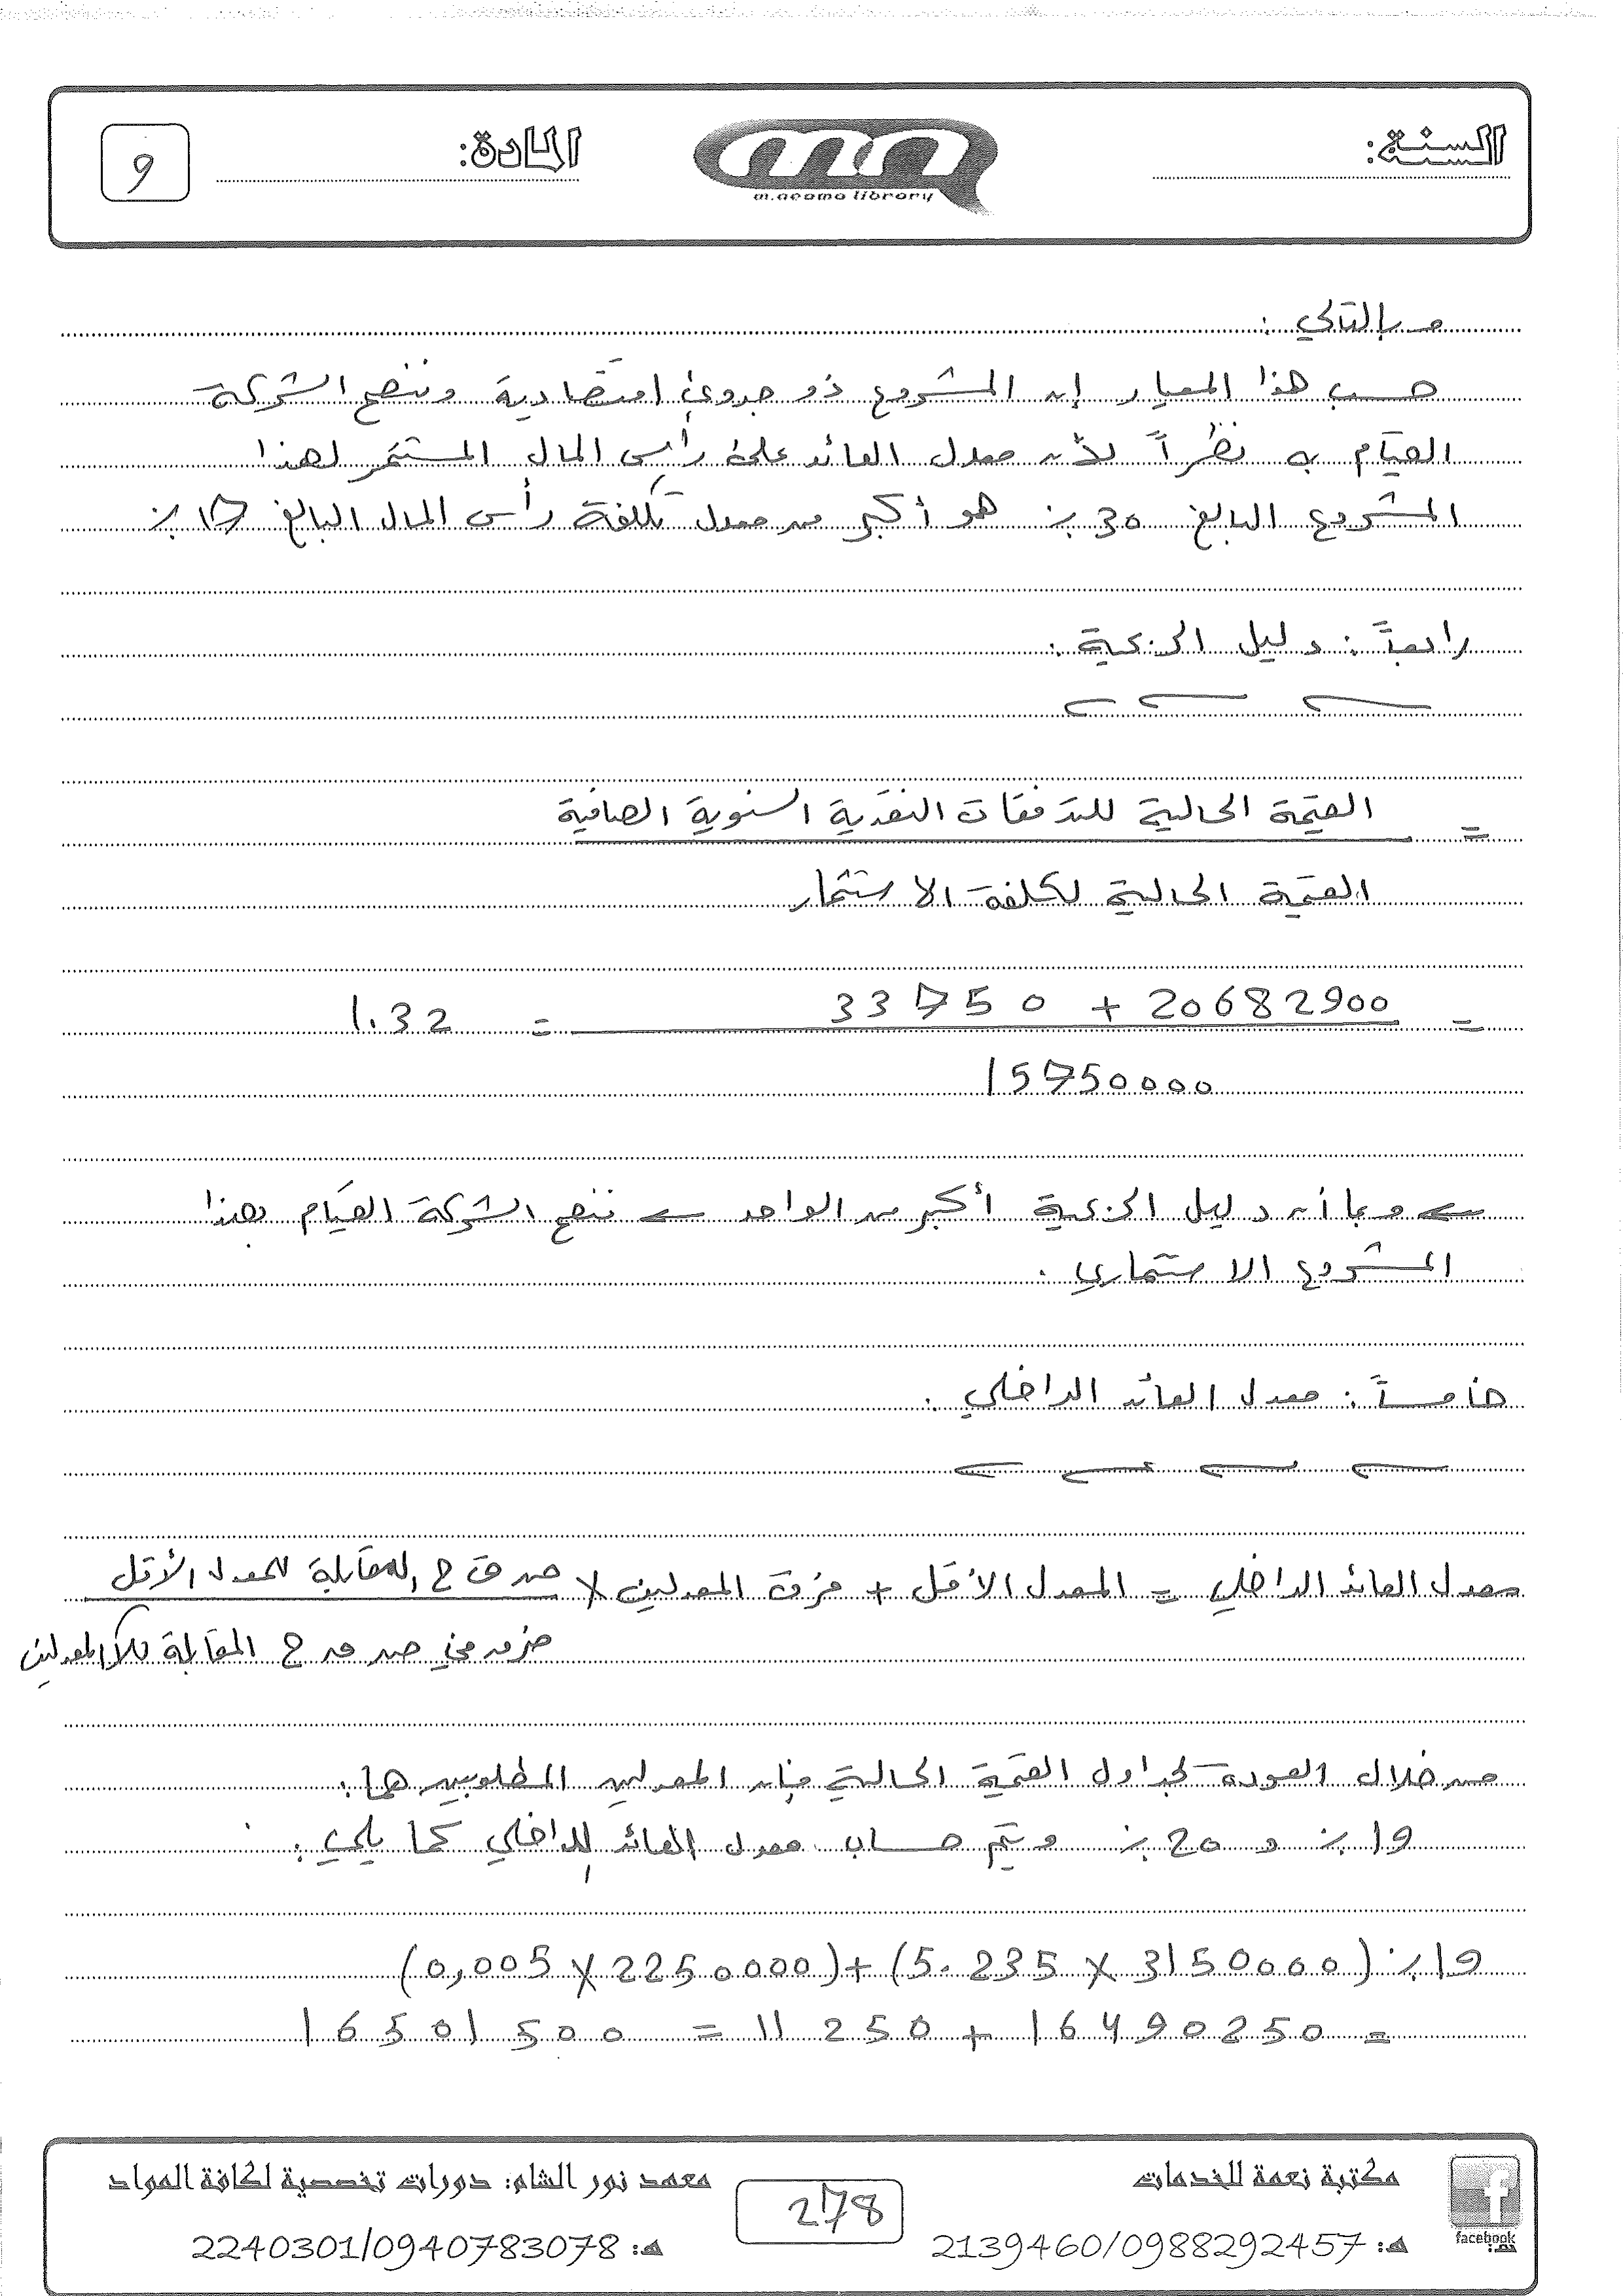 السنة:
m.neama library
المادة:
9
وبالتالي :
حسب هذا المعيار إن المشروع ذو جدوى اقتصادية وننصح الشركة
القيام به نظراً لأن معدل العائد على رأس المال المستثمر لهذا
المشروع البالغ 30 ٪ هو أكبر من معدل تكلفة رأس المال البالغ ٪
رابعاً : دليل الربحية :
= القيمة الحالية للتدفقات النقدية السنوية الصافية
القيمة الحالية لكلفة الاستثمار
= 20682900 + 33750 = 1.32
15750000
وبما أن دليل الربحية أكبر من الواحد ← ننصح الشركة القيام بهذا
المشروع الاستثماري .
خامساً : معدل العائد الداخلي :
معدل العائد الداخلي = المعدل الأقل + فرق المعدلين × ص ق ح المقابلة للمعدل الأقل
فرق في ص ق ح المقابلة لكلا المعدلين
من خلال العودة لجداول القيمة الحالية فإن المعدلين المطلوبين هما :
19 ٪ و 20 ٪ ويتم حساب معدل العائد الداخلي كما يلي :
19 ٪ (3150000 × 5.235) + (2250000 × 0,005)
= 16490250 + 11250 = 16501500
مكتبة نعمة للخدمات
معهد نور الشام: دورات تخصصية لكافة المواد
278
facebook
هـ: 2139460/0988292457
هـ: 2240301/0940783078